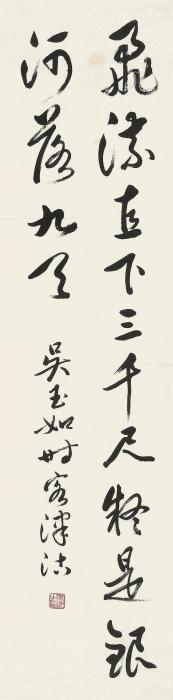 飛流直下三千尺疑是銀
河落九天
吳玉如時客津沽